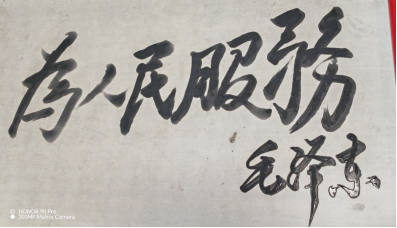 為人民服務
毛泽东
HONOR 90 Pro
200MP Matrix Camera